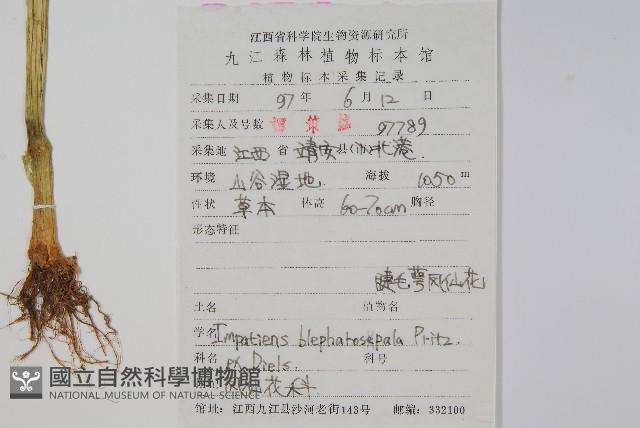 江西省科学院生物资源研究所
九江森林植物标本馆
植物标本采集记录
采集日期 97 年 6 月 12 日
采集人及号数 谭策铭 97789
采集地 江西 省 靖安 县(市) 北港.
环境 山谷湿地. 海拔 1050 m
性状 草本 体高 60-70cm 胸径
形态特征
睫毛萼凤仙花
土名 植物名
学名 Impatiens blepharosepala Pritz.
科名 ex Diels. 科号
凤仙花科
馆址:江西九江县沙河老街143号 邮编:332100
國立自然科學博物館
NATIONAL MUSEUM OF NATURAL SCIENCE